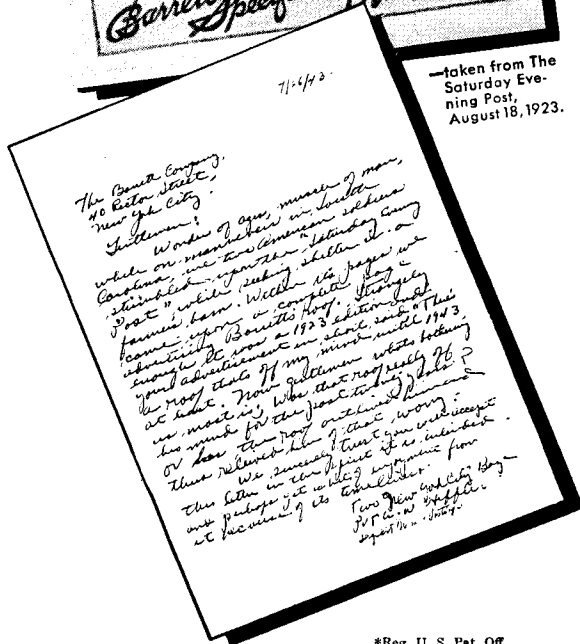 Barrett
Speci
—taken from The
Saturday Eve-
ning Post,
August 18, 1923.
7/26/43.
The Barrett Company,
40 Rector Street,
New York City.
Gentlemen:
Wonder of ages, of man,
while on maneuvers in South
Carolina, we two American soldiers
stumbled upon the "Saturday Evening
Post" while seeking shelter in a
farmer's barn. Within its pages we
came upon a complete page
advertising Barretts Roof. Strangely
enough it was a 1923 edition and
your advertisement in short, said "This
is a roof thats off my mind until 1943
at least. Now gentlemen whats bothering
us most is, Was that roof really off
his mind for the past twenty years?
or has the roof outlived him and
thus relieved him of that worry?
We sincerely trust you will accept
this letter in the spirit it is intended
and perhaps get a bit of enjoyment from
it because of its timeliness.
Two New York City Boys
Pvt
*Reg. U. S. Pat. Off.